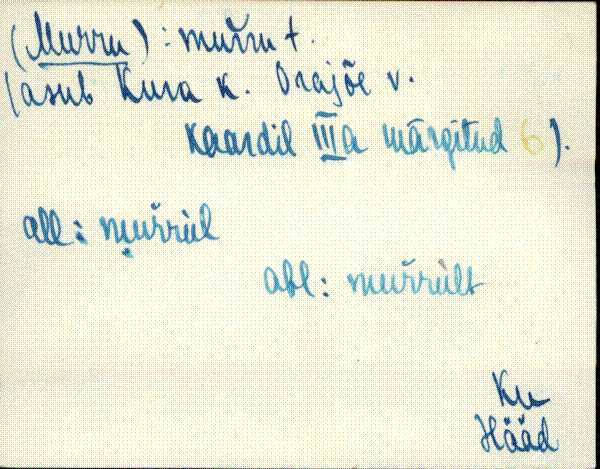 (Murru) : mur̆ru t.
(asub Kura k. Orajõe v.
Kaardil IIIa märgitud 6).
all: mur̆rul
abl: mur̆rult
Ku
Hääd